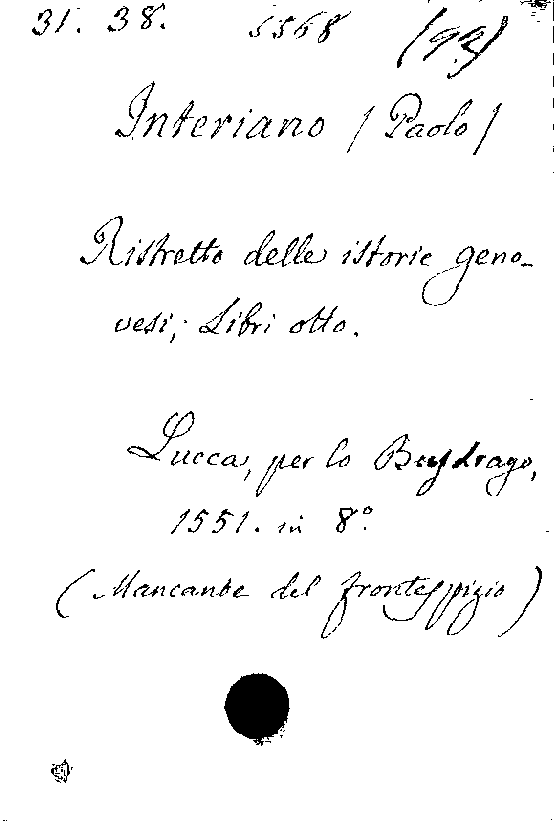 31. 38. 5568 (92)
Interiano / Paolo /
Ristretto delle istorie geno-
vesi; Libri otto.
Lucca, per lo Busdrago,
1551. in 8°.
(Mancante del frontespizio)